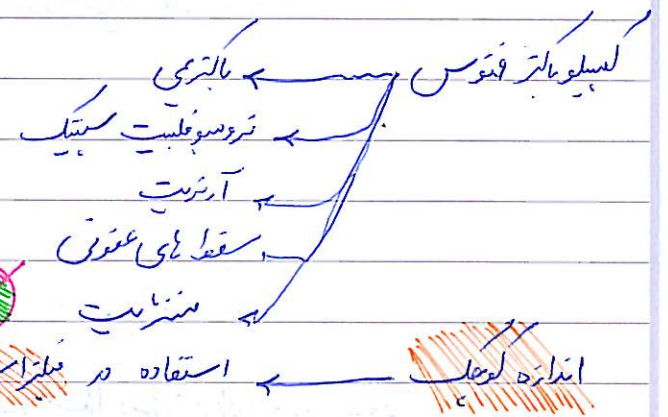 کمپیلوباکتر فتوس → باکتریمی
ترومبوفلبیت سپتیک
آرتریت
سقط های عفونی
مننژیت
اندازه کوچک → استفاده در